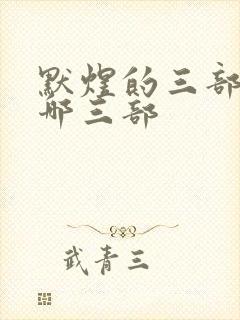 默煌的三部
哪三部
武青三